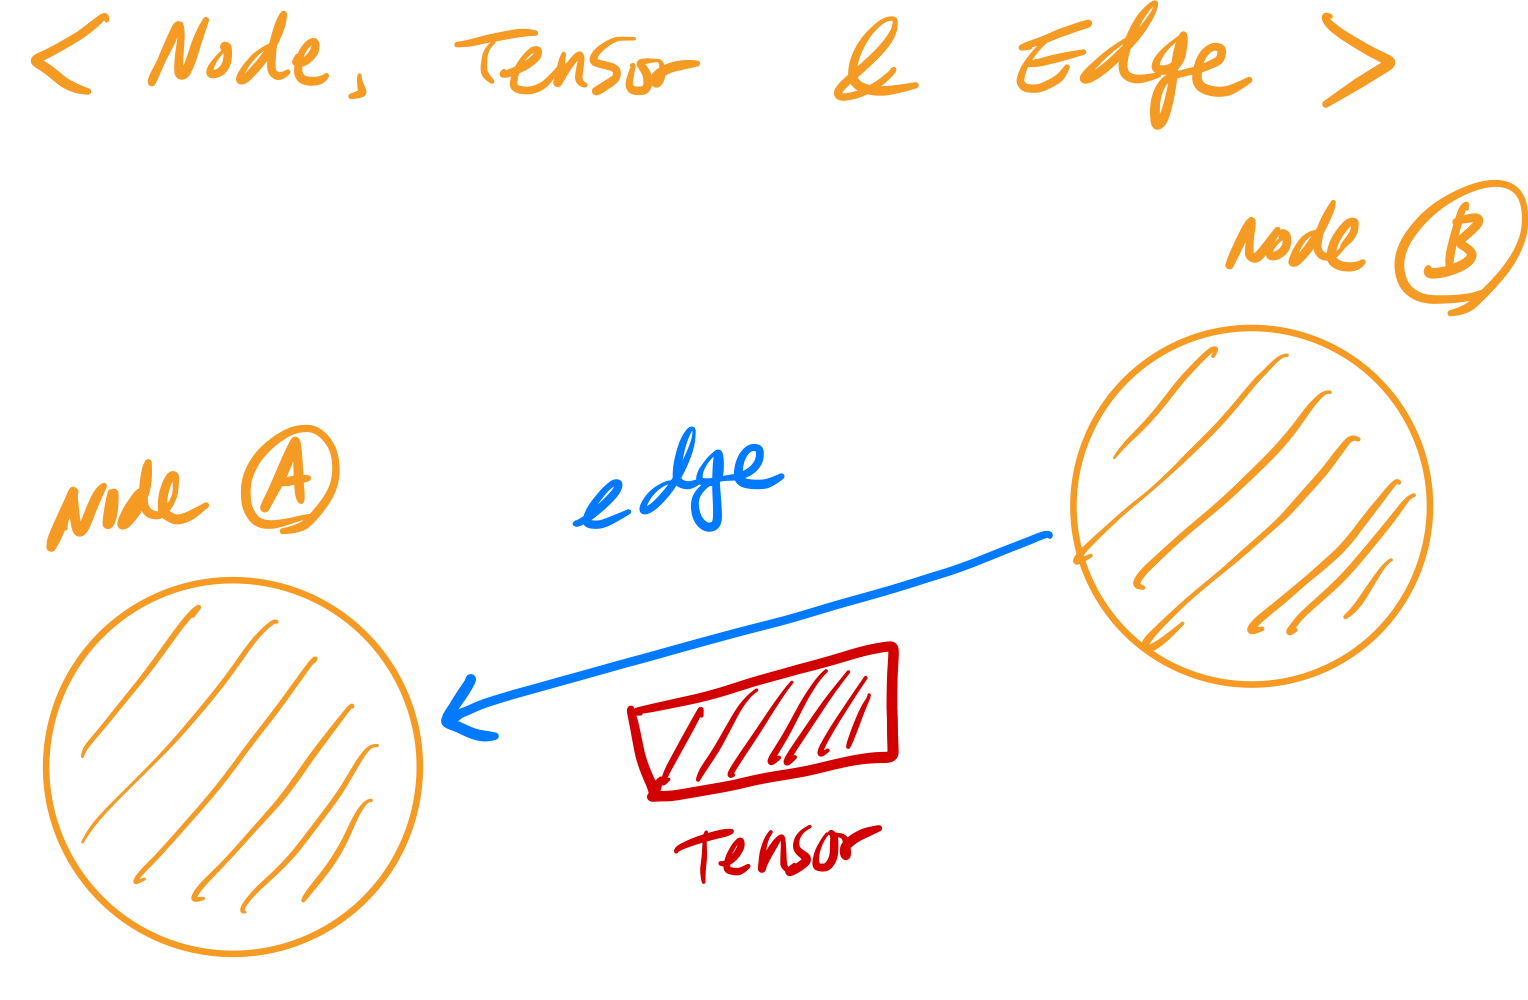 < Node, Tensor & Edge >
Node B
Node A
edge
Tensor